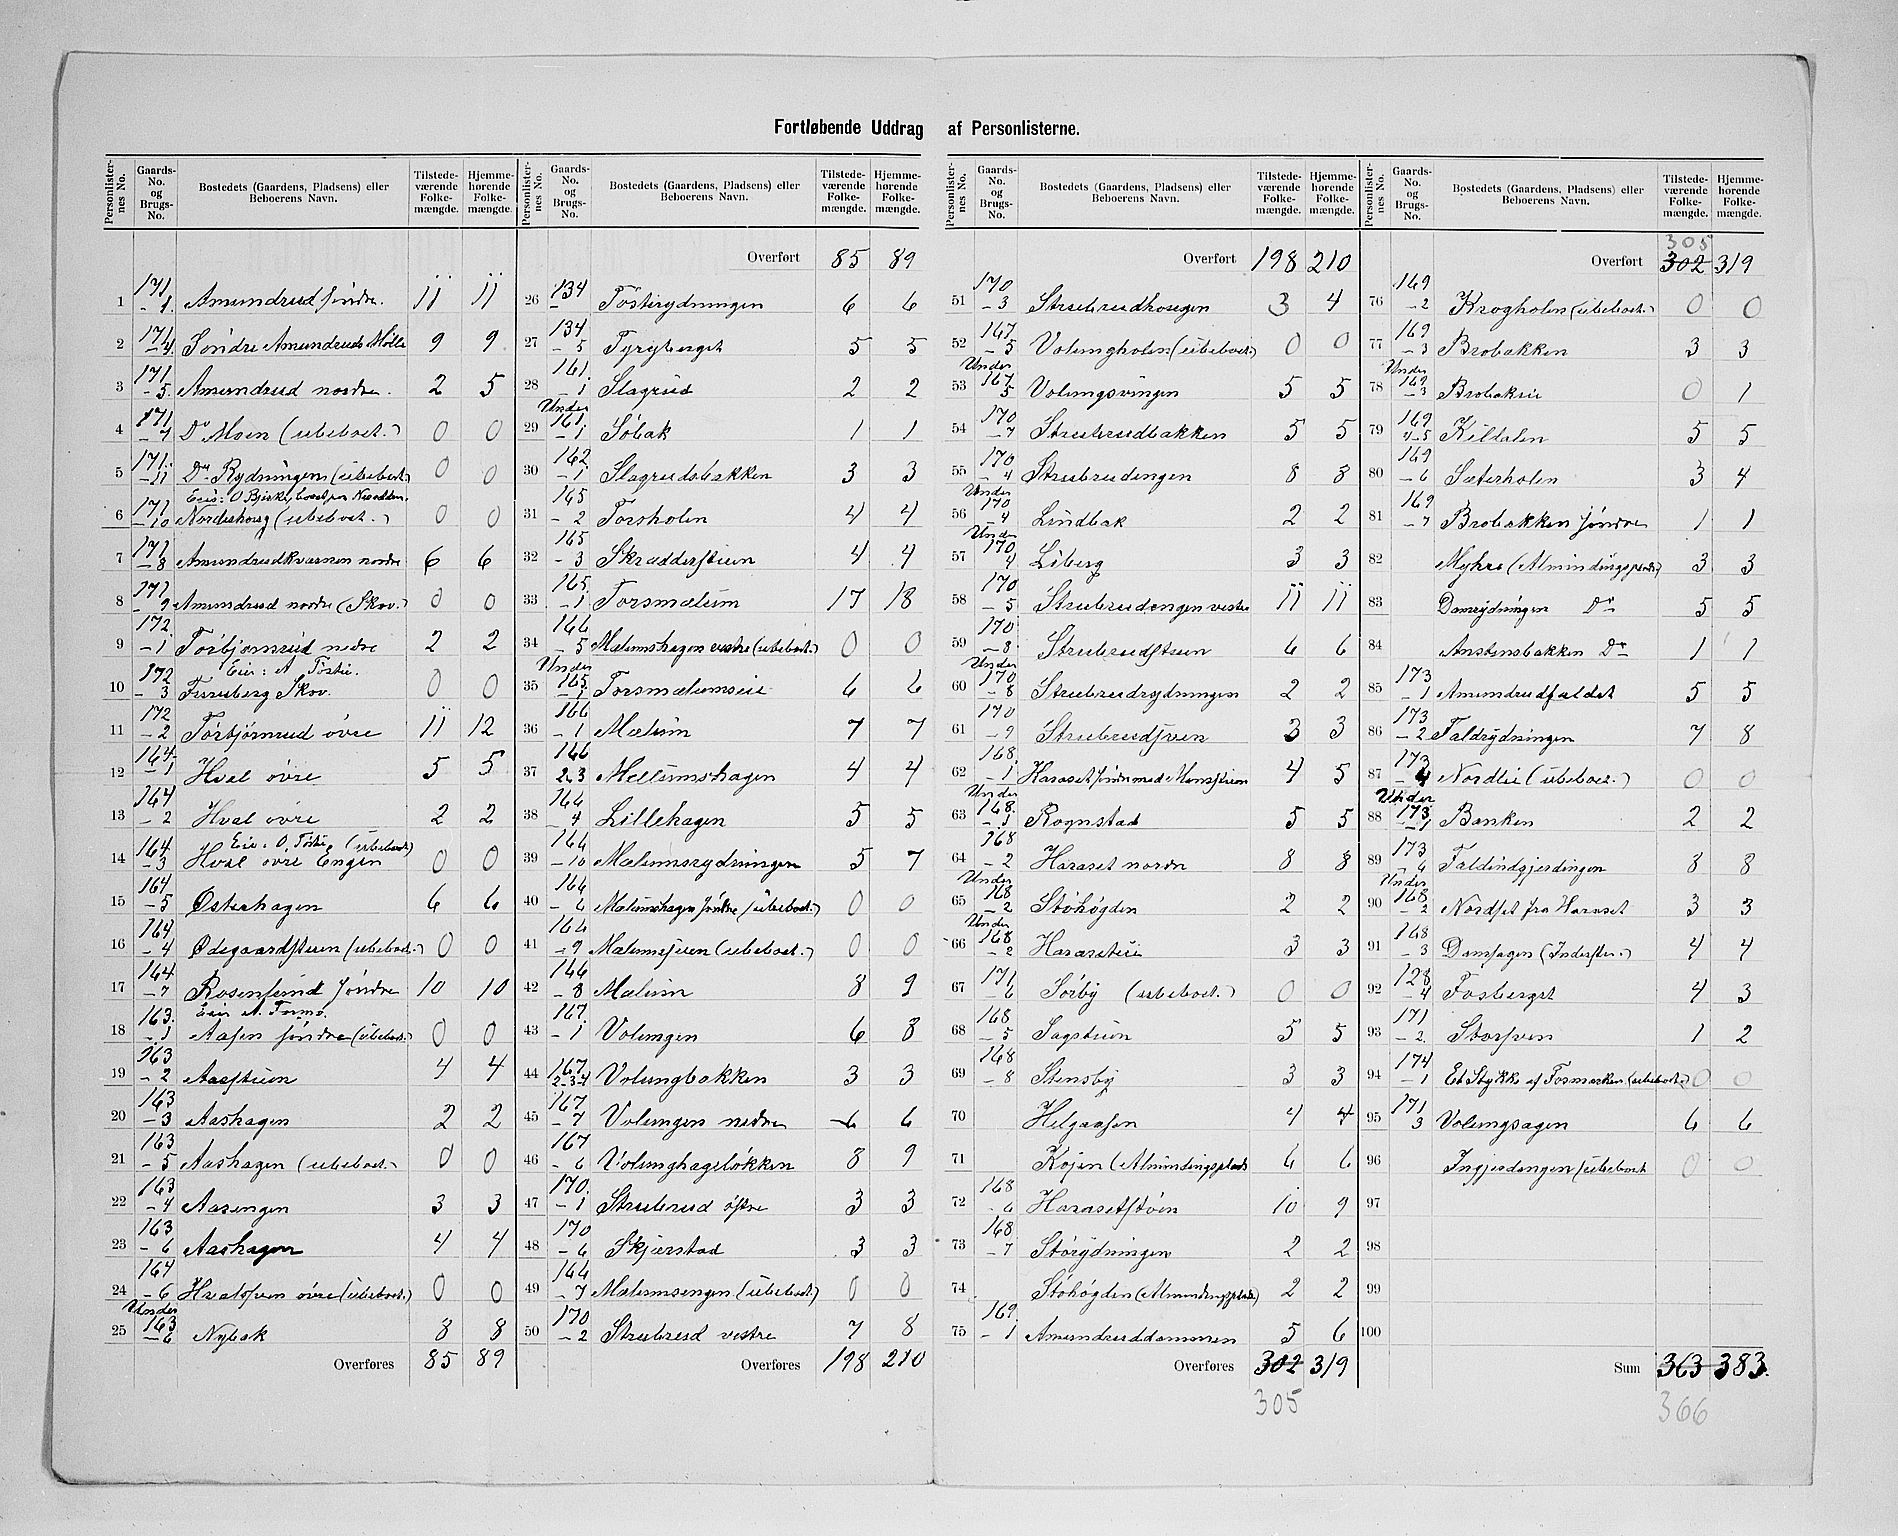 Fortløbende Uddrag af Personlisterne.
Personlister-nes No. | Gaards-No. og Brugs-No. | Bostedets (Gaardens, Pladsens) eller Beboerens Navn. | Tilstede-værende Folke-mængde. | Hjemme-hørende Folke-mængde.
1 171 - 1. Amundrud søndre. 11 11
2 171 - 4. Søndre Amundruds Mølle 9 9
3 171 - 5. Amundrud nordre. 2 5
4 171 - 7 Do Moen (ubeboet.) 0 0
5 171 - 11 Do Rydningen (ubeboet.) 0 0
6 171 - 10 Eier: O Bjerke, boet paa Nesodden. Nordenhoug (ubeboet.) 0 0
7 171 - 8 Amundrudkvernen nordre 6 6
8 171 - 9 Amundrud nordre (Skov.) 0 0
9 172 - 1 Torbjørnrud nedre 2 2
10 172 - 3 Eier: A Tostie. Furuberg Skov. 0 0
11 172 - 2 Torbjørnrud øvre 11 12
12 164 - 1 Hval øvre 5 5
13 164 - 2 Hval øvre 2 2
14 164 - 3 Eier: O. Tostie (ubeboet) Hval øvre Engen 0 0
15 164 - 5 Østerhagen 6 6
16 164 - 4 Ødegaardstuen (ubeboet.) 0 0
17 164 - 7 Rosenlund søndre 10 10
18 163. - 1 Eier A. Formo. Aasen søndre (ubeboet.) 0 0
19 163 - 2 Aasstuen 4 4
20 163 - 3 Aashagen 2 2
21 163 - 5 Aashagen (ubeboet.) 0 0
22 163 - 4 Aasengen 3 3
23 163 - 6 Aashagen 4 4
24 164 - 6 Hvalsveen øvre (ubeboet.) 0 0
25 Under 163 - 6 Nybak 8 8
Overføres 85 89
Overført 85 89
26 134 - Tosterydningen 6 6
27 134 - 5 Tyrgberget 5 5
28 161. - 1 Slagrud 2 2
29 Under 161. - 1 Søbak 1 1
30 162 - 1 Slagrudsbakken 3 3
31 165 - 2 Torsholen 4 4
32 165 - 3 Skrædderstuen 4 4
33 165 - 1 Torsmælum 17 18
34 166 - 5 Mælumshagen vestre (ubeboet.) 0 0
35 Under 165 - 1 Torsmælumseie 6 6
36 166 - 1 Mælum 7 7
37 166 2.3 Mellumshagen 4 4
38 166 - 4 Lillehagen 5 5
39 166 - 10 Mælumsrydningen 5 7
40 166 - 6 Mælumshagen søndre (ubeboet.) 0 0
41 166 - 9 Mælumsveen (ubeboet.) 0 0
42 166 - 8 Mælum 8 9
43 167. - 1 Volungen 6 8
44 167 2-3-4 Volungbakken 3 3
45 167 - 7 Volungen nedre 6 6
46 167 - 6 Volunghagaløkken 8 9
47 170. - 1 Strubrud østre 3 3
48 170 - 6 Skjærstad 3 3
49 166 - 7 Mælumsengen (ubeboet) 0 0
50 170 - 2 Strubrud vestre 7 8
Overføres 198 210
Overført 198 210
51 170 - 3 Strubrudhougen 3 4
52 167 - 5 Volungholen (ubeboet.) 0 0
53 Under 167 5 Volungsvingen 5 5
54 170 - 7 Strubrudbakken 5 5
55 170 - 4 Strubrudengen 8 8
56 Under 170 - 4 Lundbak 2 2
57 Under 170 4 Liberg 3 3
58 170 - 5 Strubrudengen vestre 11 11
59 170 - 8 Strubrudstuen 6 6
60 Under 170 - 8 Strubrudrydningen 2 2
61 170 - 9 Strubrudsven 3 3
62 168 - 1 Haraset søndre med Monsstuen 4 5
63 Under 168 - 1 Rognstad 5 5
64 168 - 2 Haraset nordre 8 8
65 Under 168 - 2 Støhøgden 2 2
66 Under 168 - 2 Haraseteie 3 3
67 171 - 6 Sørby (ubeboet.) 0 0
68 168 - 5 Sagstuen 5 5
69 168 - 8 Stensby 3 3
70 Helgaasen 4 4
71 Kojen (Almindingsplads 6 6
72 168 - 6 Harasetstøen 10 9
73 168 - 7 Størydningen 2 2
74 Støhøgden (Almindingsplads) 2 2
75 169. - 1 Amundruddammen 5 6
Overføres 302 319
305
305
Overført 302 319
76 169 - 2 Krogholen (ubeboet.) 0 0
77 169 - 3 Brobakken 3 3
78 Under 169 - 3 Brobakeie 0 1
79 169 4-5 Kildalen 5 5
80 169 - 6 Sæterholen 3 4
81 169 - 7 Brobakken søndre 1 1
82 Myhre (Almindingsplads) 3 3
83 Damrydningen Do 5 5
84 Anstensbakken Do 1 1
85 173 - 1 Amundrudfaldet 5 5
86 173 - 2 Faldrydningen 7 8
87 173 - 4 Nordlie (ubeboet.) 0 0
88 Under 173 - 1 Banken 2 2
89 173 - 4 Faldindgjerdingen 8 8
90 Under 168 - 2 Nordset fra Haraset 3 3
91 168 - 3 Damsagen (Inderster.) 4 4
92 128 - 4 Fosberget 4 3
93 171 - 2. Storsven 1 2
94 174 - 1 Et Stykke af Formarken (ubeboet.) 0 0
95 171 3 Volungsagen 6 6
96 Ingjerdengen (ubeboet 0 0
97
98
99
100
Sum 363 383.
366